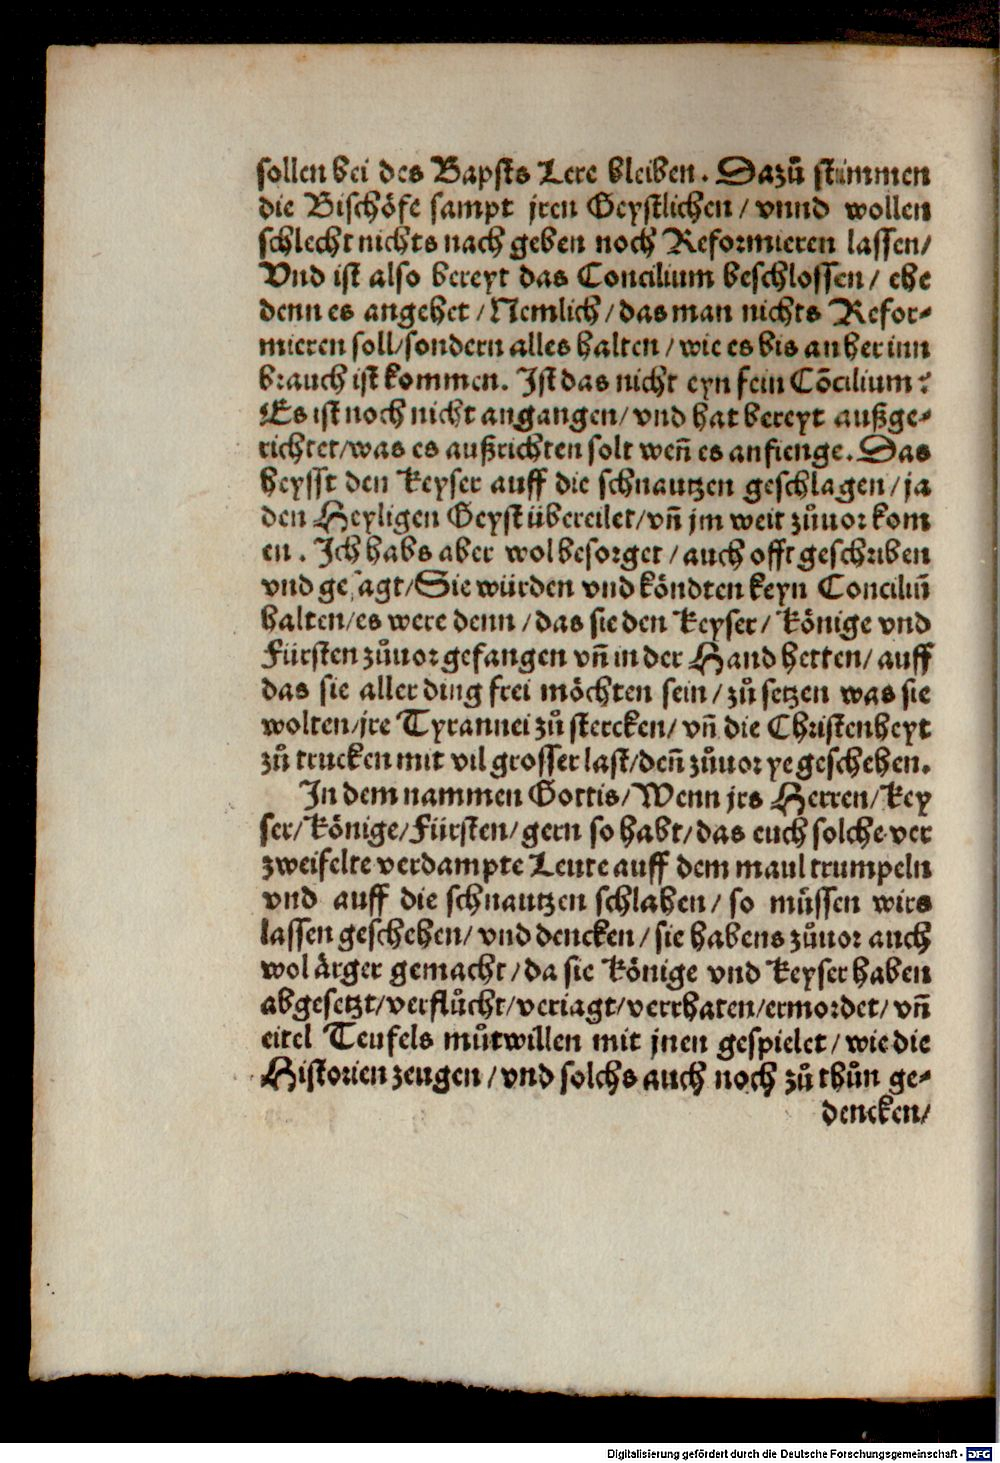 sollen bei des Bapsts Lere bleiben. Dazů stimmen
die Bischöfe sampt jren Geystlichen / vnnd wollen
schlecht nichts nach geben noch Reformieren lassen/
Vnd ist also bereyt das Concilium beschlossen / ehe
denn es angehet / Nemlich / das man nichts Refor⸗
mieren soll/sondern alles halten / wie es bis anher inn
brauch ist kommen. Ist das nicht eyn fein Cōcilium?
Es ist noch nicht angangen/ vnd hat bereyt außge⸗
richtet/was es außrichten solt weñ es anfienge. Das
heysst den Keyser auff die schnautzen geschlagen / ja
den Heyligen Geyst übereilet/vñ jm weit zůuor kom
en. Ich habs aber wol besorget / auch offt geschriben
vnd gesagt/Sie würden vnd köndten keyn Conciliũ
halten/es were denn / das sie den Keyser / Könige vnd
Fürsten zůuor gefangen vñ in der Hand hetten/ auff
das sie aller ding frei möchten sein / zů setzen was sie
wolten/jre Tyrannei zů stercken/ vñ die Christenheyt
zů trucken mit vil grosser last/deñ zůuor ye geschehen.
In dem nammen Gottis/Wenn jrs Herren/Key
ser/Könige/Fürsten/gern so habt/das euch solche ver
zweifelte verdampte Leute auff dem maul trumpeln
vnd auff die schnautzen schlahen / so müssen wirs
lassen geschehen/ vnd dencken / sie habens zůuor auch
wol ärger gemacht / da sie Könige vnd Keyser haben
abgesetzt/verflůcht/veriagt/verrhaten/ermordet/ vñ
eitel Teufels můtwillen mit jnen gespielet / wie die
Historien zeugen / vnd solchs auch noch zů thůn ge⸗
dencken/
Digitalisierung gefördert durch die Deutsche Forschungsgemeinschaft - DFG